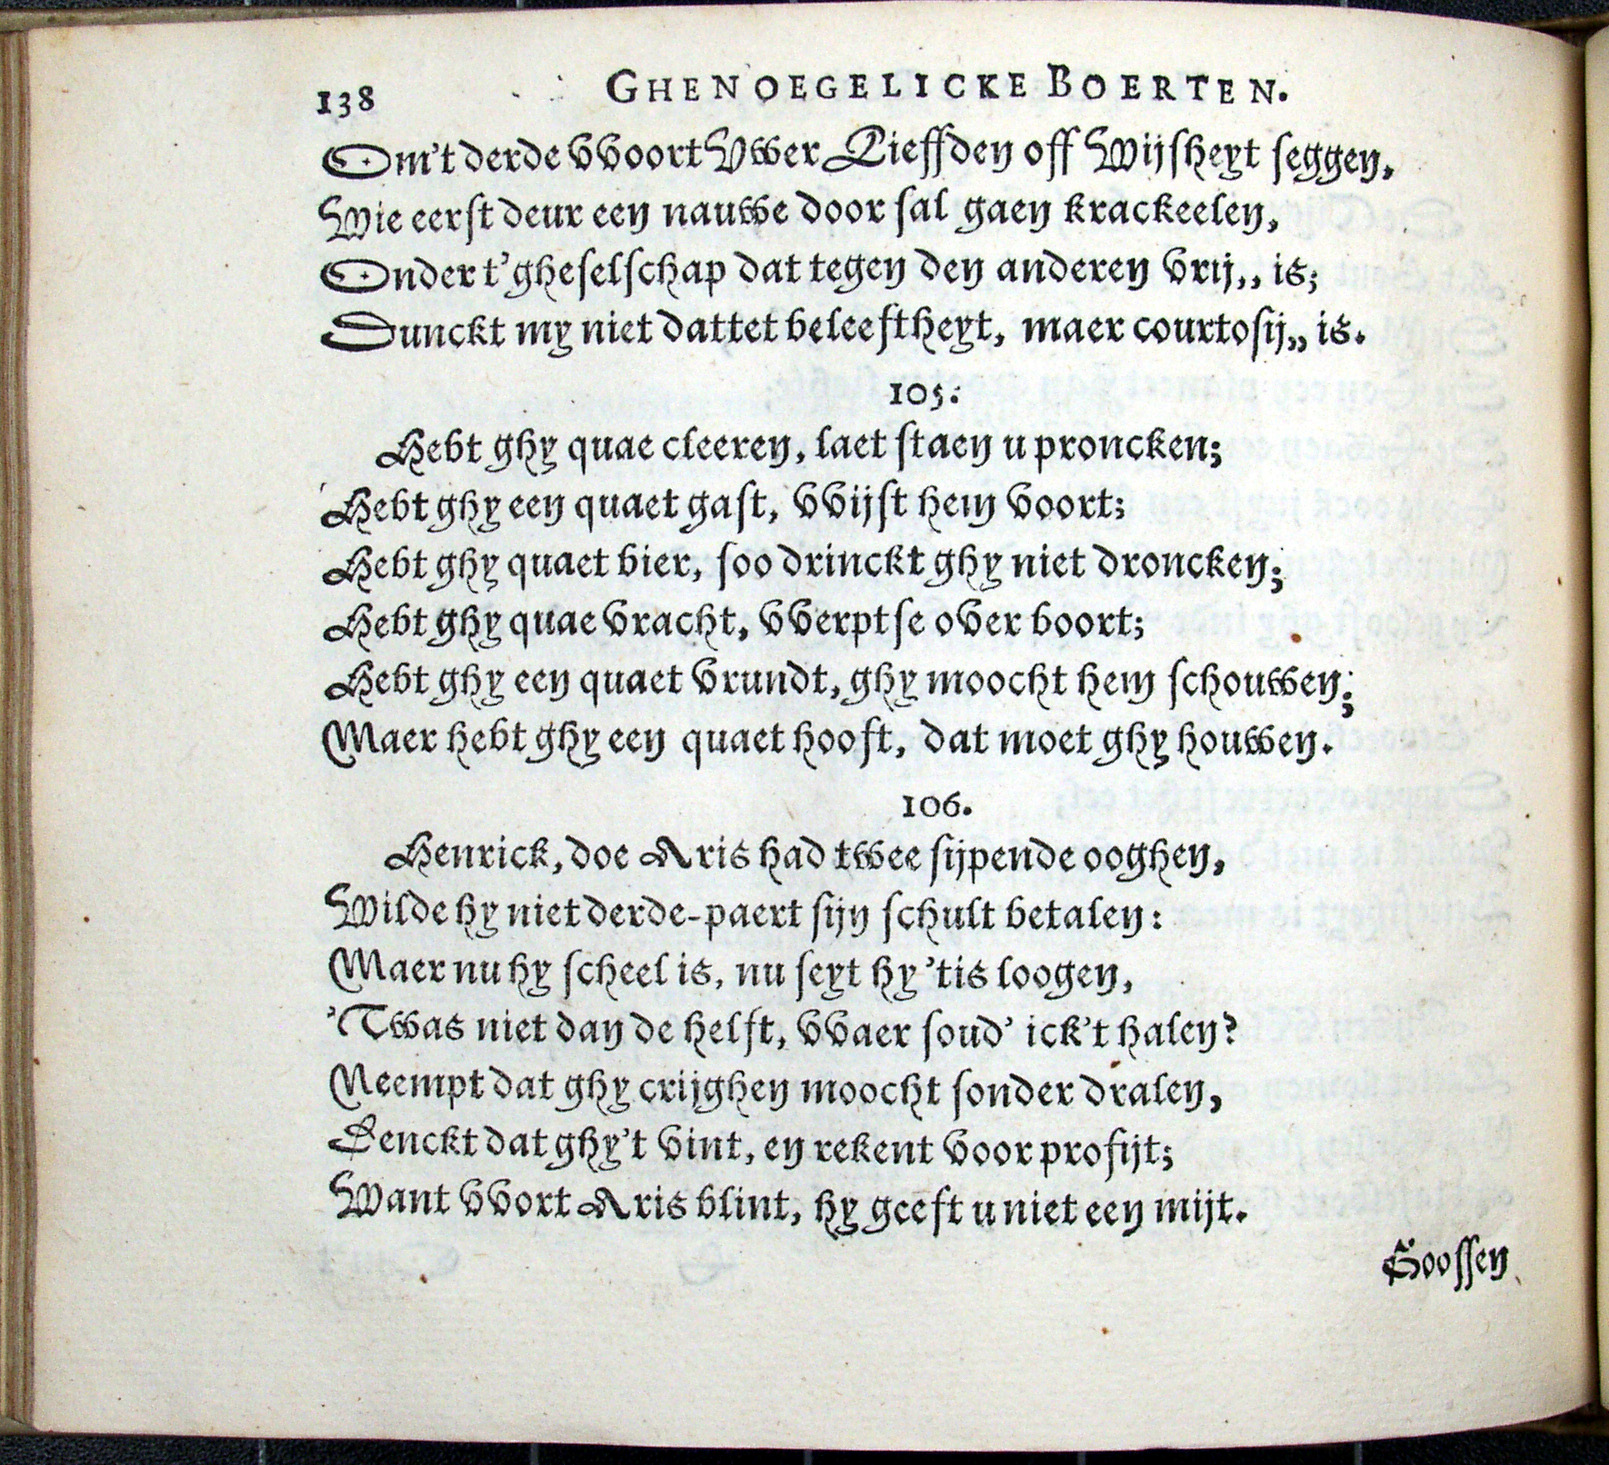 138 GHENOEGELICKE BOERTEN.
Om't derde vvoort Uwer Lieffden off Wijsheyt seggen,
Wie eerst deur een nauwe door sal gaen krackeelen,
Onder t'gheselschap dat tegen den anderen vrij,, is;
Dunckt my niet dattet beleeftheyt, maer courtosij,, is.
105.
Hebt ghy quae cleeren, laet staen u proncken;
Hebt ghy een quaet gast, vvijst hem voort;
Hebt ghy quaet bier, soo drinckt ghy niet droncken;
Hebt ghy quae vracht, vverptse over boort;
Hebt ghy een quaet vrundt, ghy moocht hem schouwen;
Maer hebt ghy een quaet hooft, dat moet ghy houwen.
106.
Henrick, doe Aris had twee sijpende ooghen,
Wilde hy niet derde-paert sijn schult betalen:
Maer nu hy scheel is, nu seyt hy 'tis loogen,
'Twas niet dan de helft, vvaer soud' ick't halen?
Neempt dat ghy crijghen moocht sonder dralen,
Denckt dat ghy't vint, en rekent voor profijt;
Want vvort Aris blint, hy geeft u niet een mijt.
Goossen